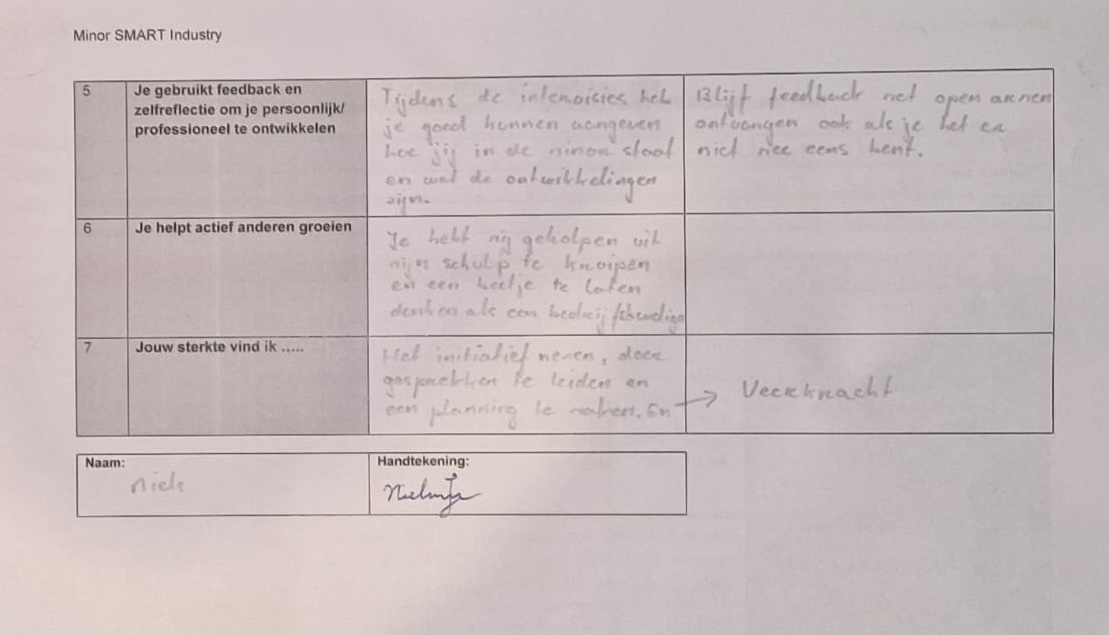 Minor SMART Industry
5
Je gebruikt feedback en
zelfreflectie om je persoonlijk/
professioneel te ontwikkelen
Tijdens de intervisies heb
je goed kunnen aangeven
hoe jij in de minor staat
en wat de ontwikkelingen
zijn.
Blijf feedback met open armen
ontvangen ook als je het er
niet mee eens bent.
6
Je helpt actief anderen groeien
Je hebt mij geholpen uit
mijn schulp te kruipen
en een beetje te laten
denken als een bedrijfskundige
7
Jouw sterkte vind ik .....
Het initiatief nemen, door
gesprekken te leiden en
een planning te maken. En
→ Veerkracht
Naam:
Niels
Handtekening: